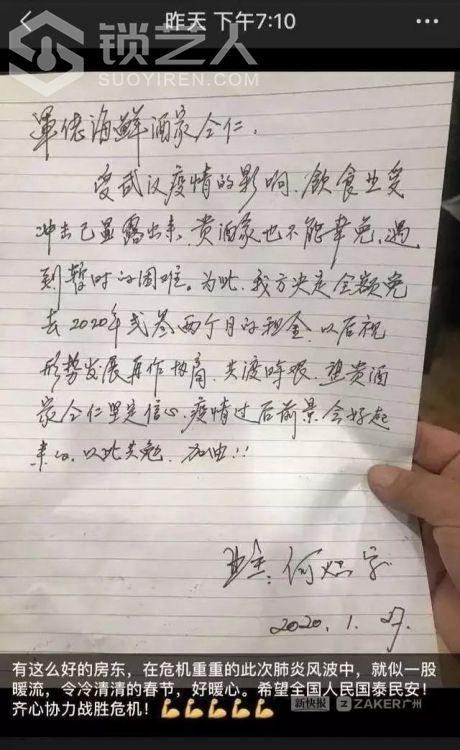 昨天 下午7:10
锁艺人
SUOYIREN.COM
軍佬海鲜酒家仝仁,
受武汉疫情的影响,飲食业受
冲击已显露出来,贵酒家也不能幸免,遇
到暂时的困难。为此,我方决定全额免
去2020年弍叁两个月的租金,以后视
形势发展再作协商,共渡時艰,望贵酒
家仝仁坚定信心,疫情过后前景会好起
来的,以此共勉,加油!!
业主:何
2020.1.27.
有这么好的房东,在危机重重的此次肺炎风波中,就似一股
暖流,令冷清清的春节,好暖心。希望全国人民国泰民安!
齐心协力战胜危机!💪💪💪💪💪
新快报 ZAKER广州